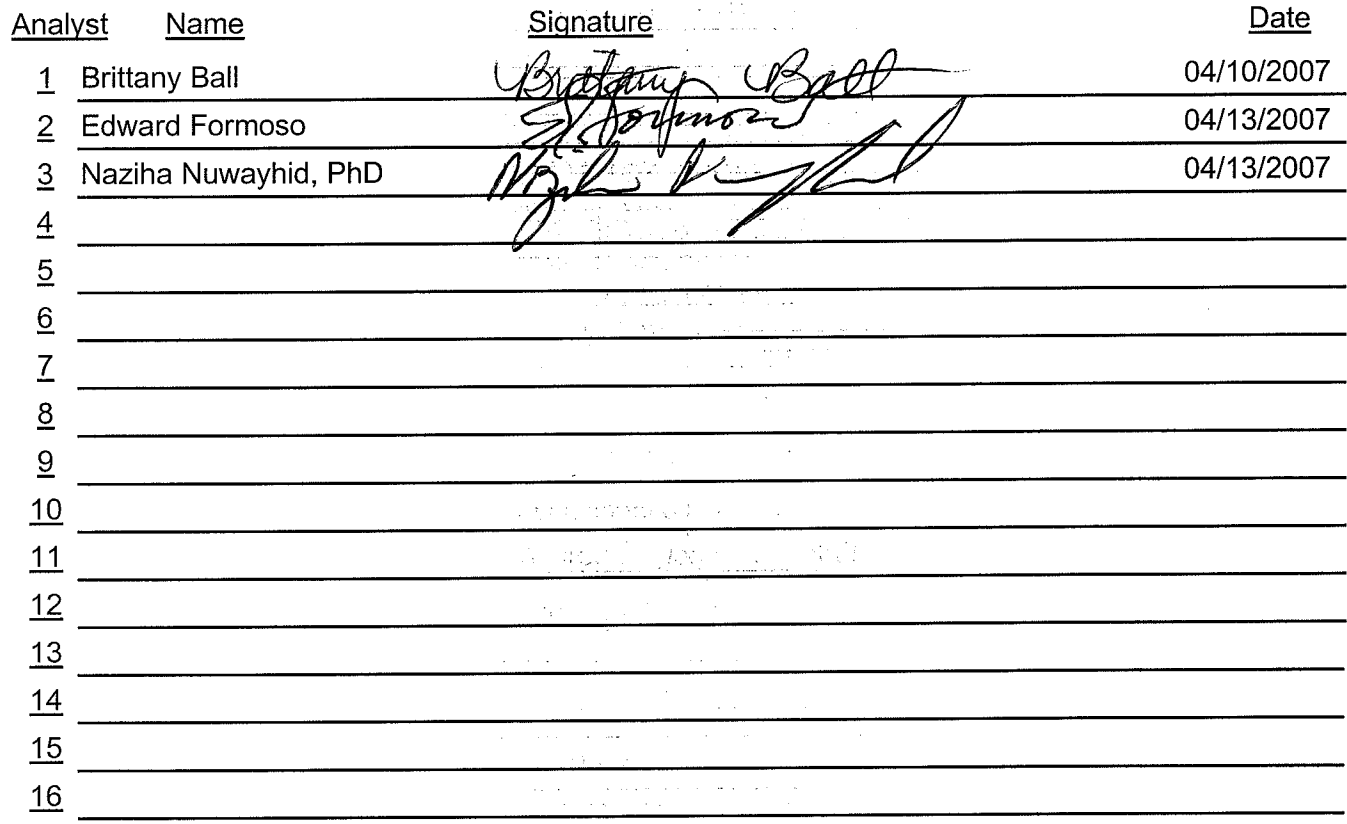 Analyst Name Signature Date
1 Brittany Ball Brittany Ball 04/10/2007
2 Edward Formoso E. Formoso 04/13/2007
3 Naziha Nuwayhid, PhD 04/13/2007
4
5
6
7
8
9
10
11
12
13
14
15
16